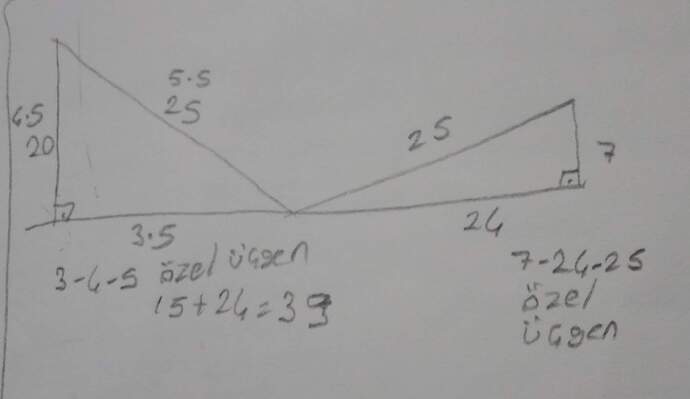 5.5
25
4.5
20
25
7
3.5
24
3-4-5 özel üçgen
15+24=39
7-24-25
özel
üçgen